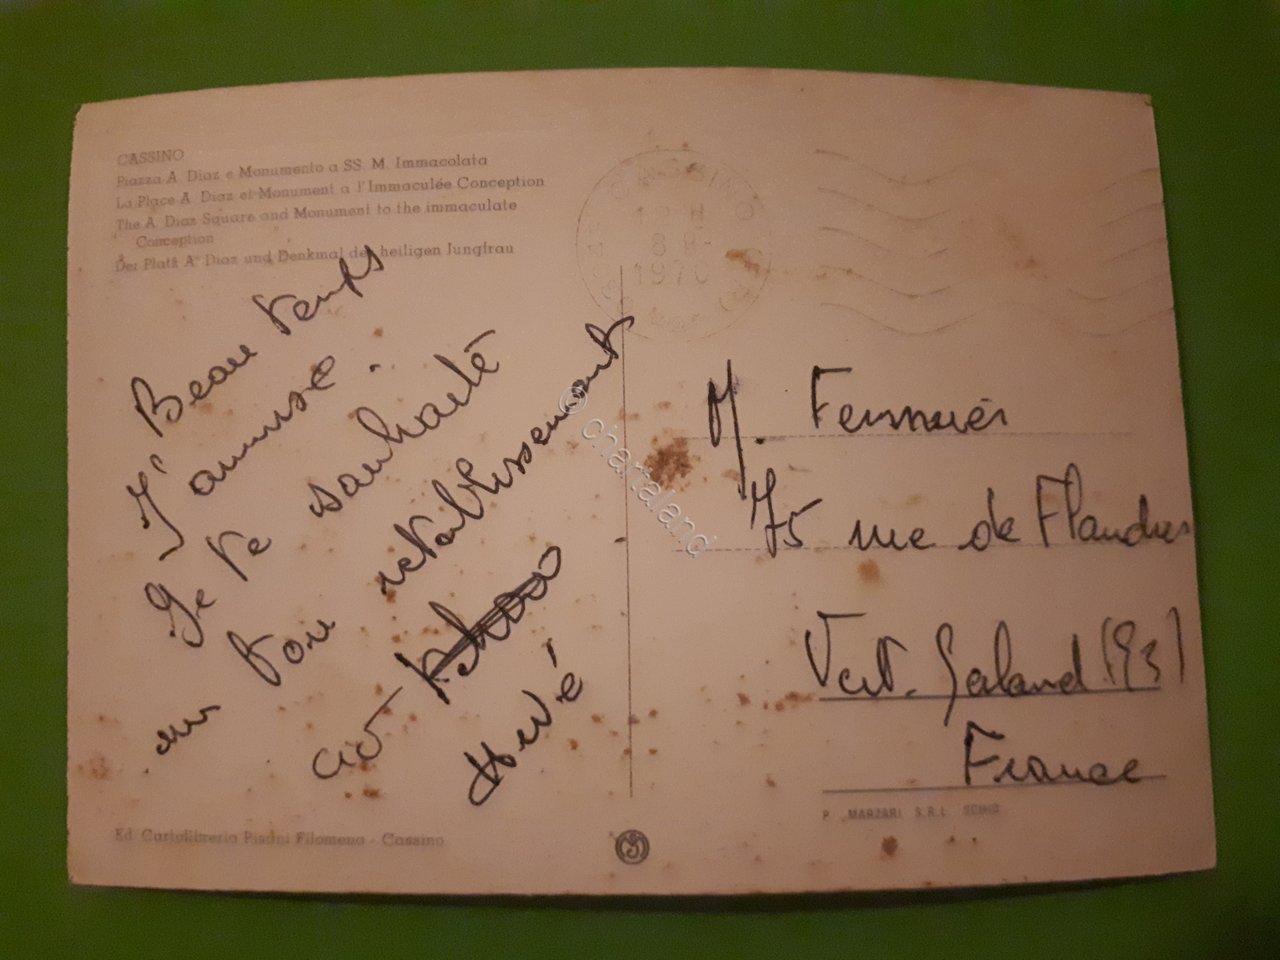 CASSINO
Piazza A. Diaz e Monumento a SS. M. Immacolata
La Place A. Diaz et Monument a l'Immaculée Conception
The A. Diaz Square and Monument to the immaculate
Conception
Der Platz A. Diaz und Denkmal der heiligen Jungfrau
1970
Beau temps
J'amuse.
Je te souhaite
un bon retablissement
Hervé
M.
75 rue de Flandres
Vert-Galand (93)
France
© chartaland
P. MARZARI S.R.L. SCHIO
Ed. Cartolibreria Pisani Filomena - Cassino